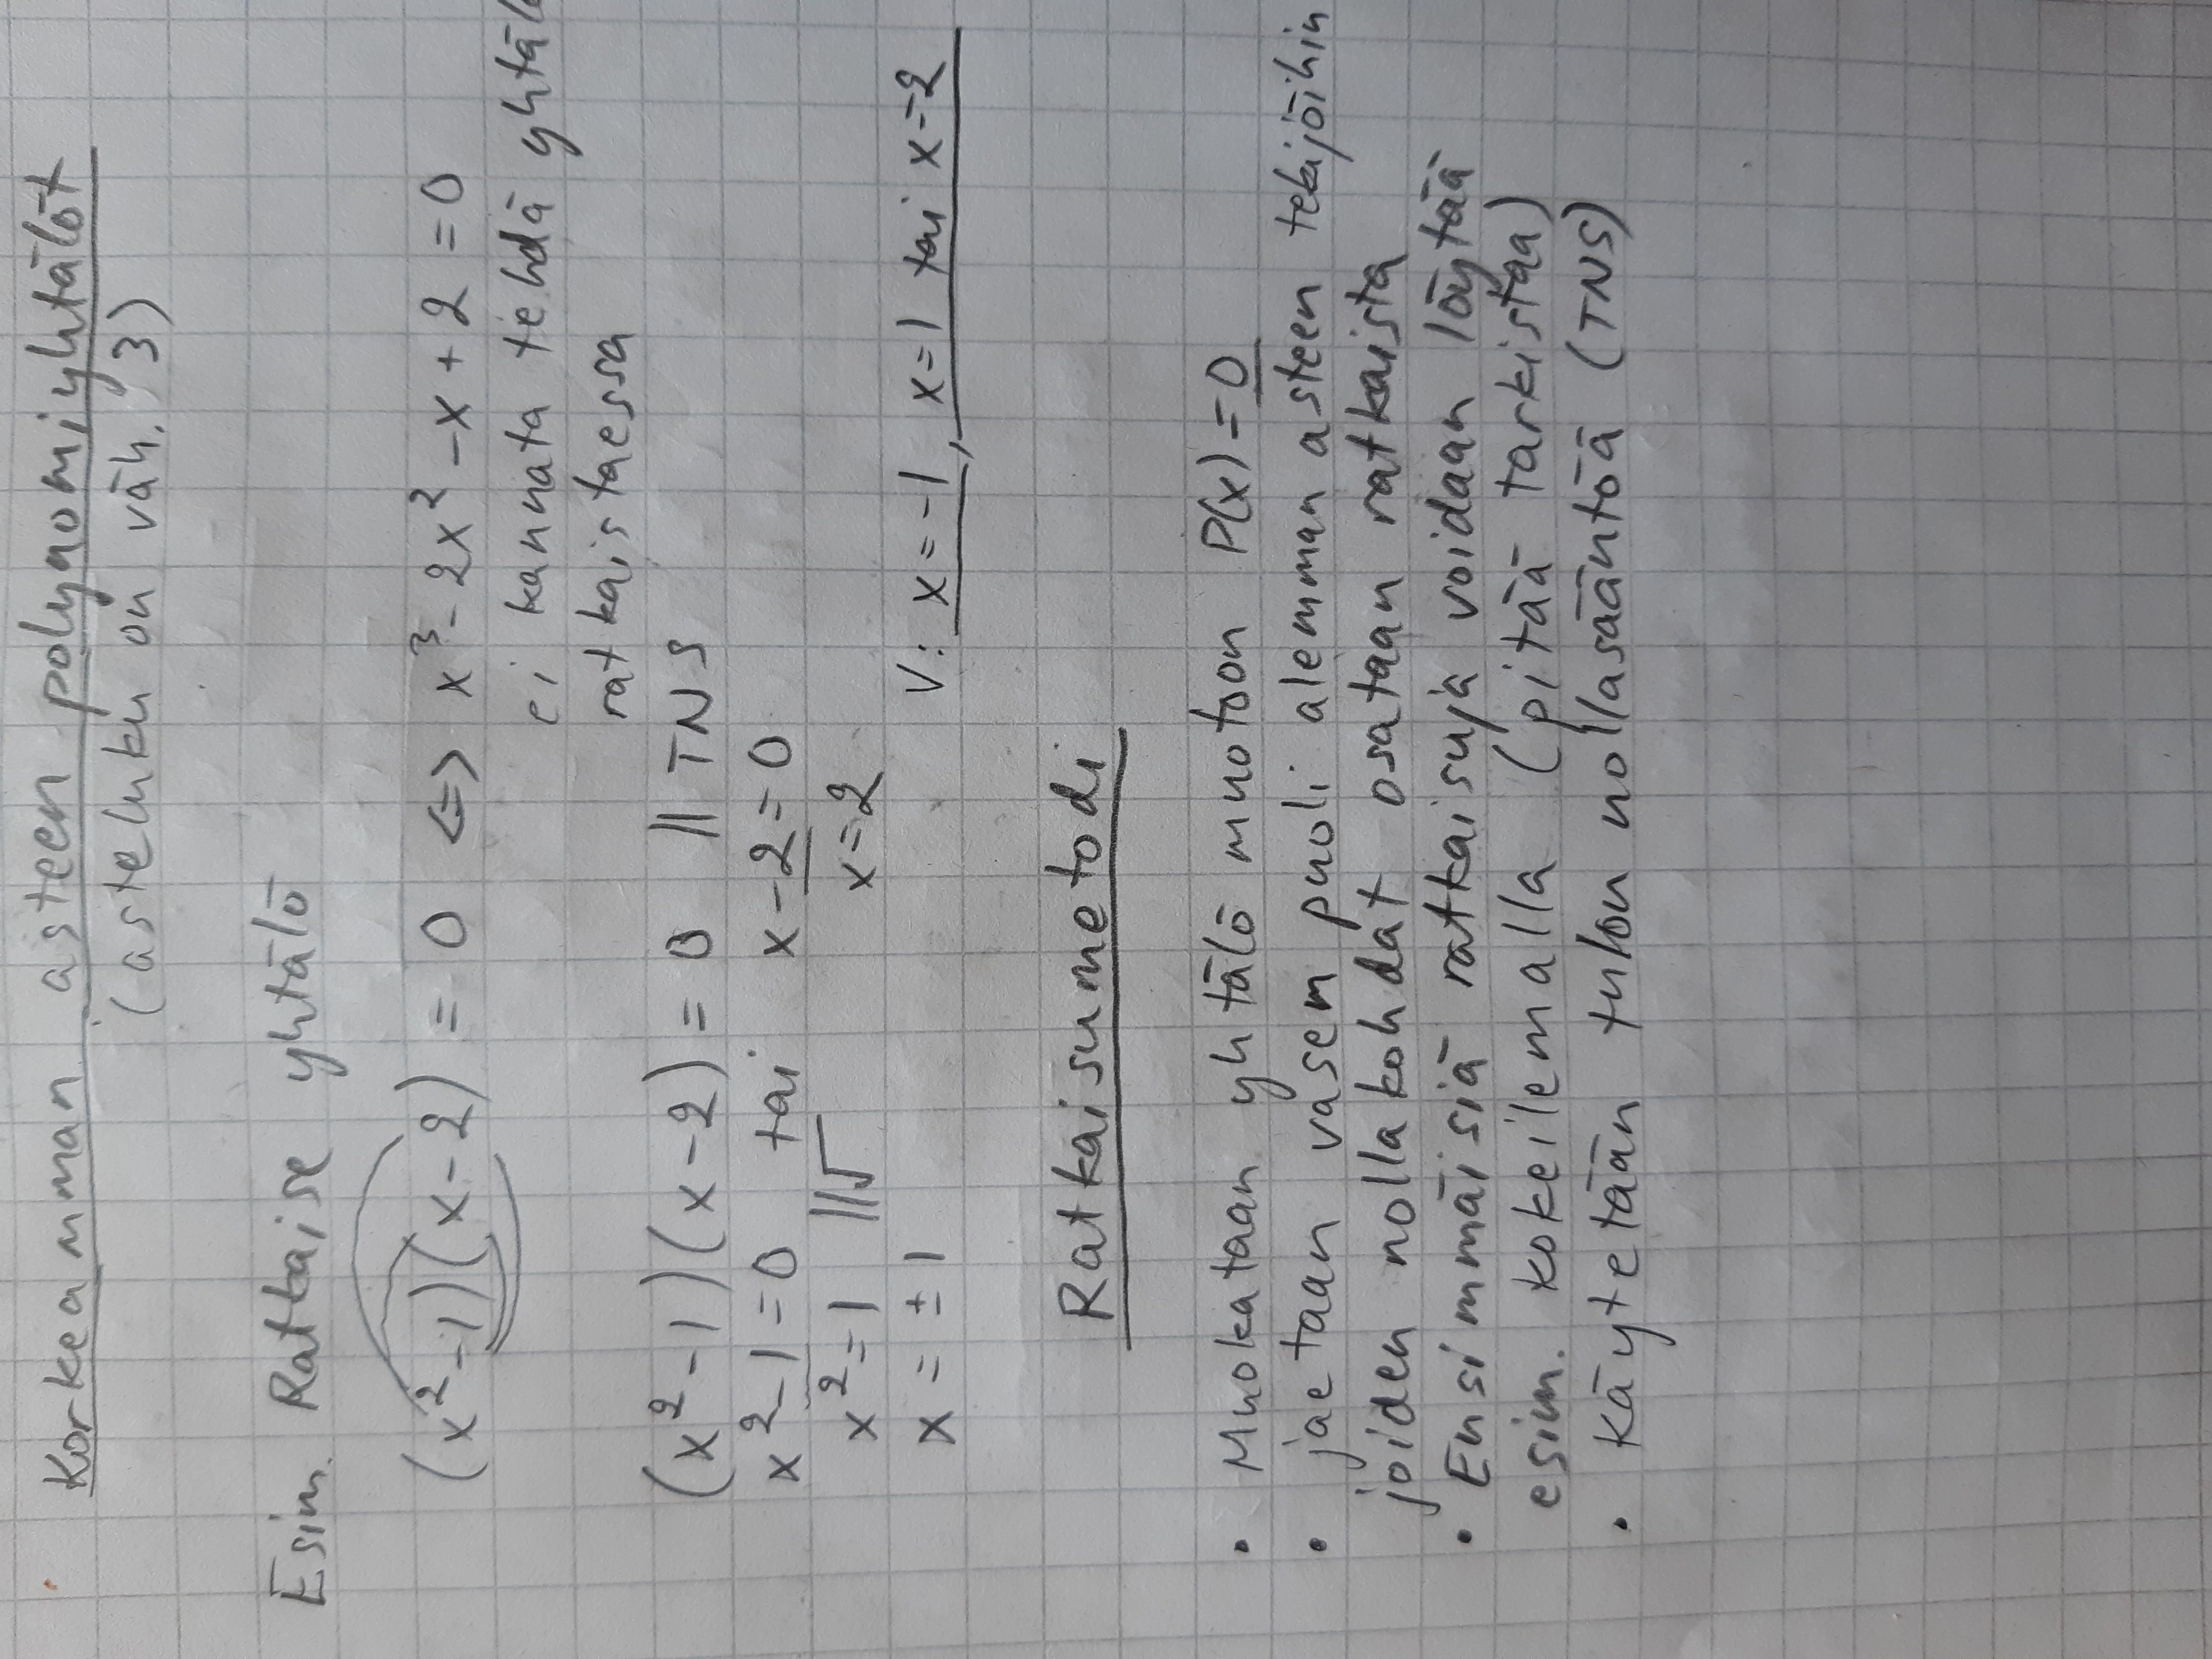 Korkeamman asteen polynomiyhtälöt
(asteluku on väh. 3)
Esim. Ratkaise yhtälö
(x²-1)(x-2) = 0 <=> x³-2x²-x+2=0
ei kannata tehdä
ratkaistaessa
(x²-1)(x-2) = 0 || TNS
x²-1=0 tai x-2=0
x²=1 ||√ x=2
x=±1 V: x=-1, x=1 tai x=2
Ratkaisumetodi
• Muokataan yhtälö muotoon P(x)=0
• jaetaan vasem puoli alemman asteen tekijöihin
joiden nollakohdat osataan ratkaista
• Ensimmäisiä ratkaisuja voidaan löytää
esim. kokeilemalla (pitää tarkistaa)
• käytetään tulon nollasääntöä (TNS)